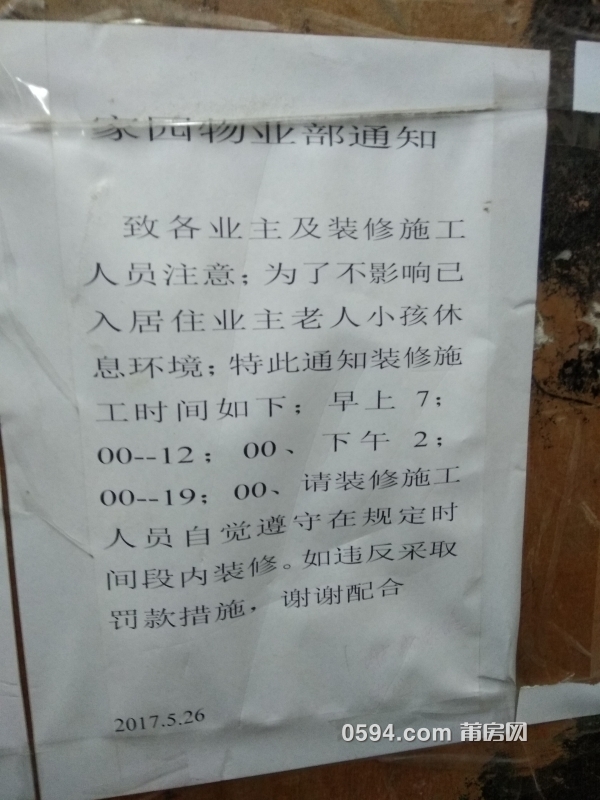 家园物业部通知
致各业主及装修施工
人员注意；为了不影响已
入居住业主老人小孩休
息环境；特此通知装修施
工时间如下；早上 7；
00--12；00、下午 2；
00--19；00、请装修施工
人员自觉遵守在规定时
间段内装修。如违反采取
罚款措施，谢谢配合
2017.5.26
0594.com 莆房网